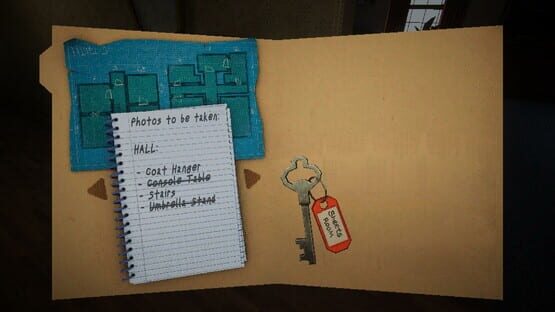 Photos to be taken:
HALL:
- Coat Hanger
- Console Table
- Stairs
- Umbrella Stand
Room